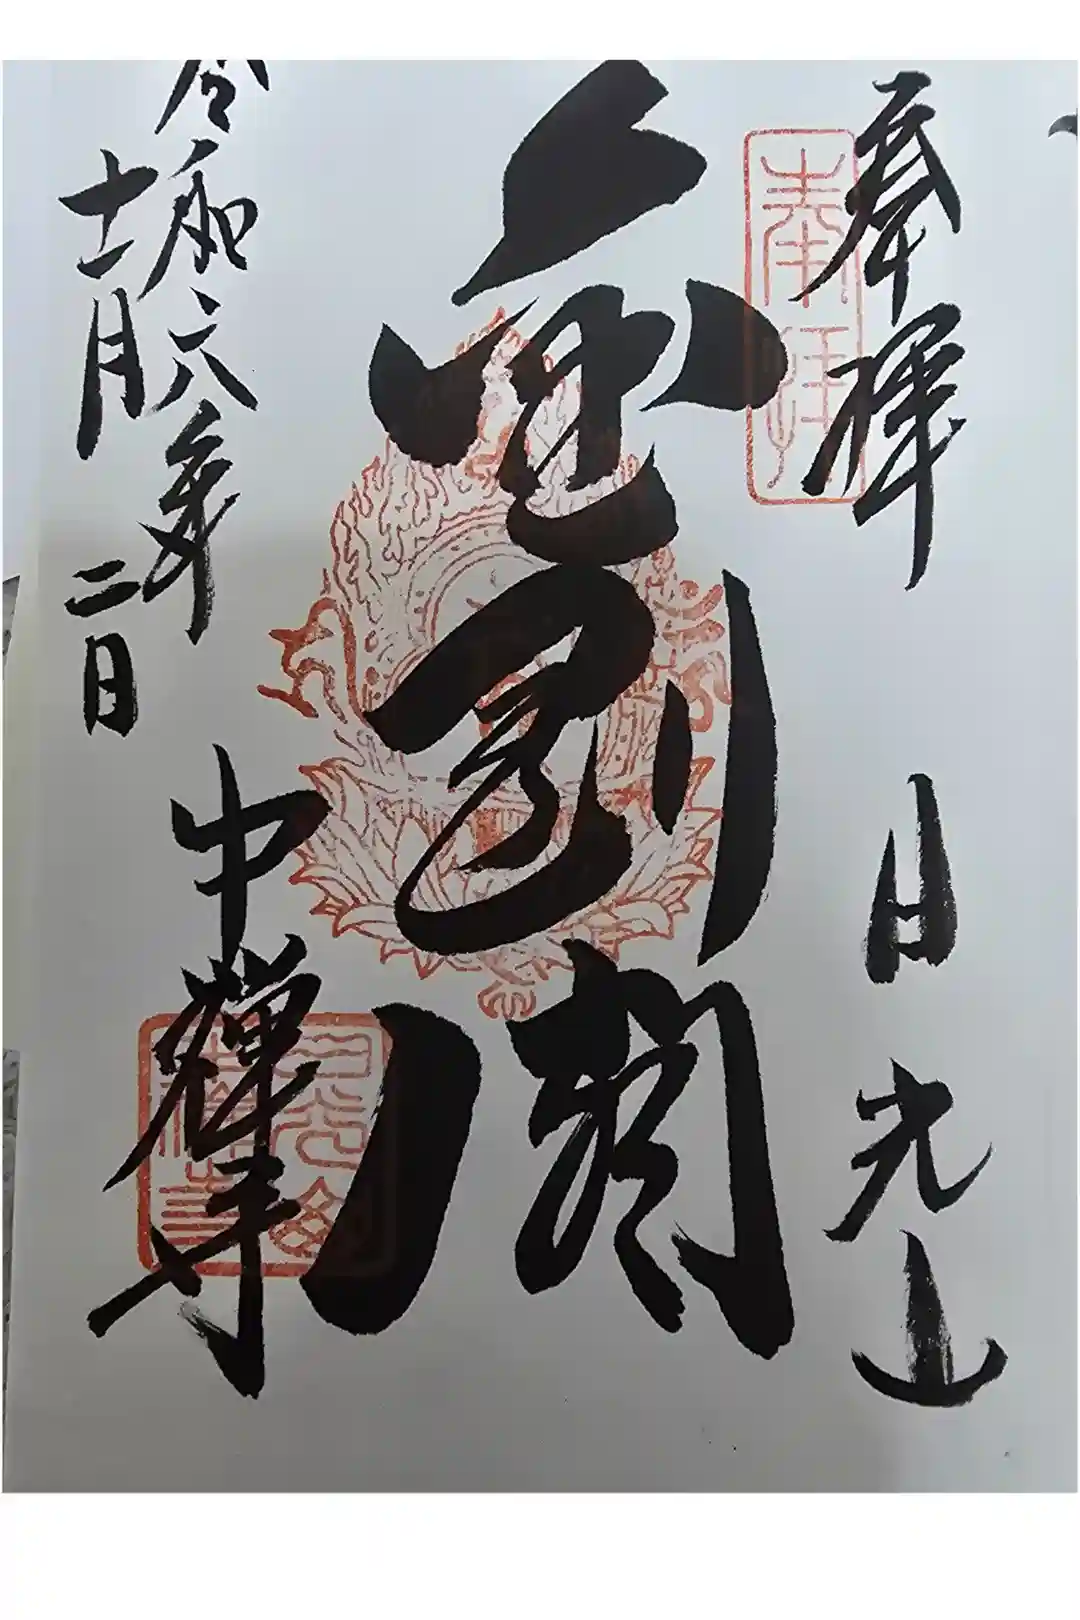 奉拝
奉拝
日光山
金剛閣
令和六年
十一月二日
中禪寺